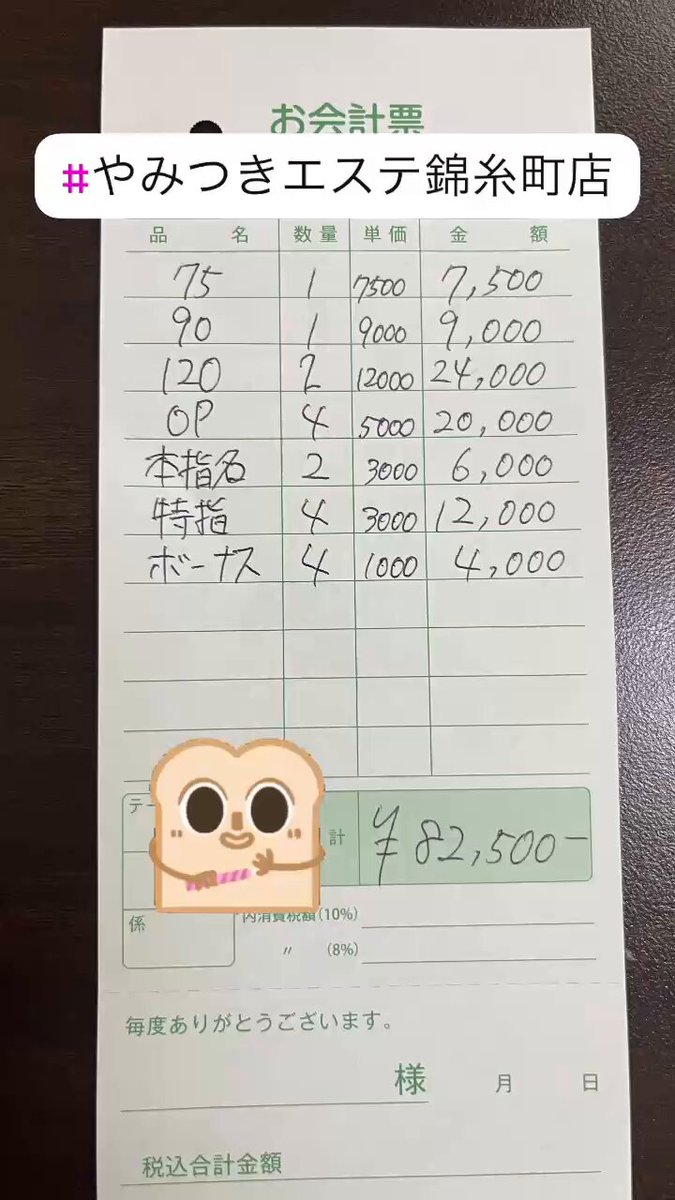 お会計票
#やみつきエステ錦糸町店
品 名 数量 単価 金 額
75 1 7500 7,500
90 1 9000 9,000
120 2 12000 24,000
OP 4 5000 20,000
本指名 2 3000 6,000
特指 4 3000 12,000
ボーナス 4 1000 4,000
テー
計 ¥82,500-
係
内消費税額(10%)
〃 (8%)
毎度ありがとうございます。
様 月 日
税込合計金額